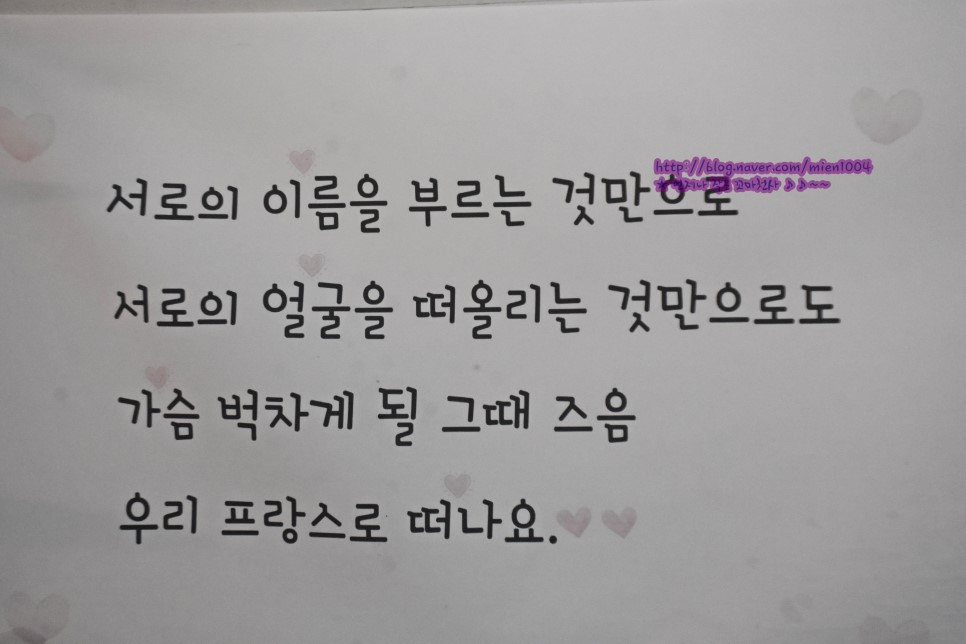 http://blog.naver.com/mien1004
서로의 이름을 부르는 것만으로
서로의 얼굴을 떠올리는 것만으로도
가슴 벅차게 될 그때 즈음
우리 프랑스로 떠나요.